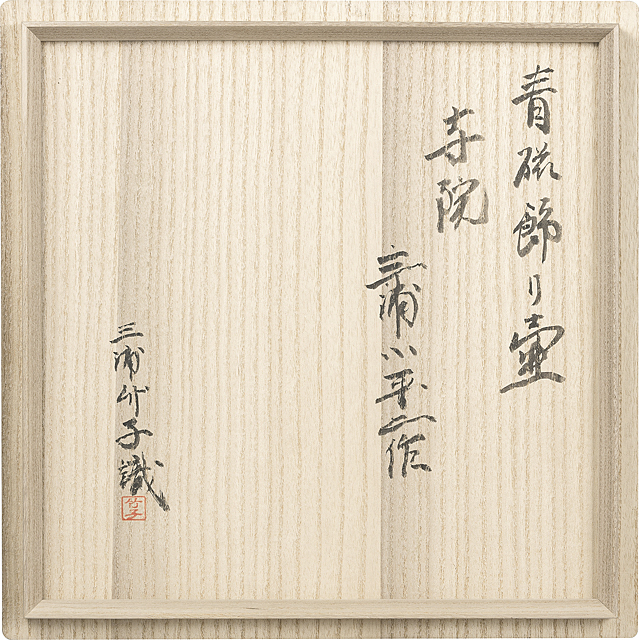 青磁飾り壷
寺院
三浦小平二作
三浦竹子識
竹子